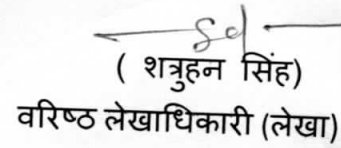 Sd
( शत्रुहन सिंह)
वरिष्ठ लेखाधिकारी (लेखा)